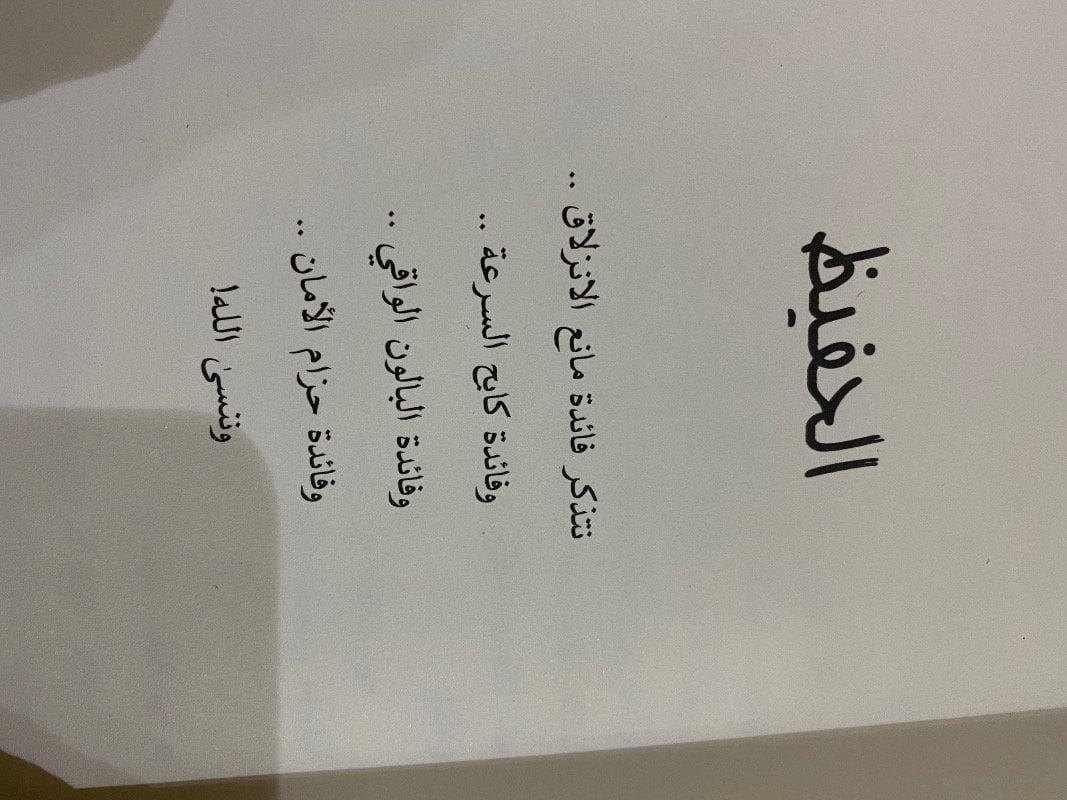 الحفيظ
نتذكر فائدة مانع الانزلاق ..
وفائدة كابح السرعة ..
وفائدة البالون الواقي ..
وفائدة حزام الأمان ..
وننسىٰ الله!